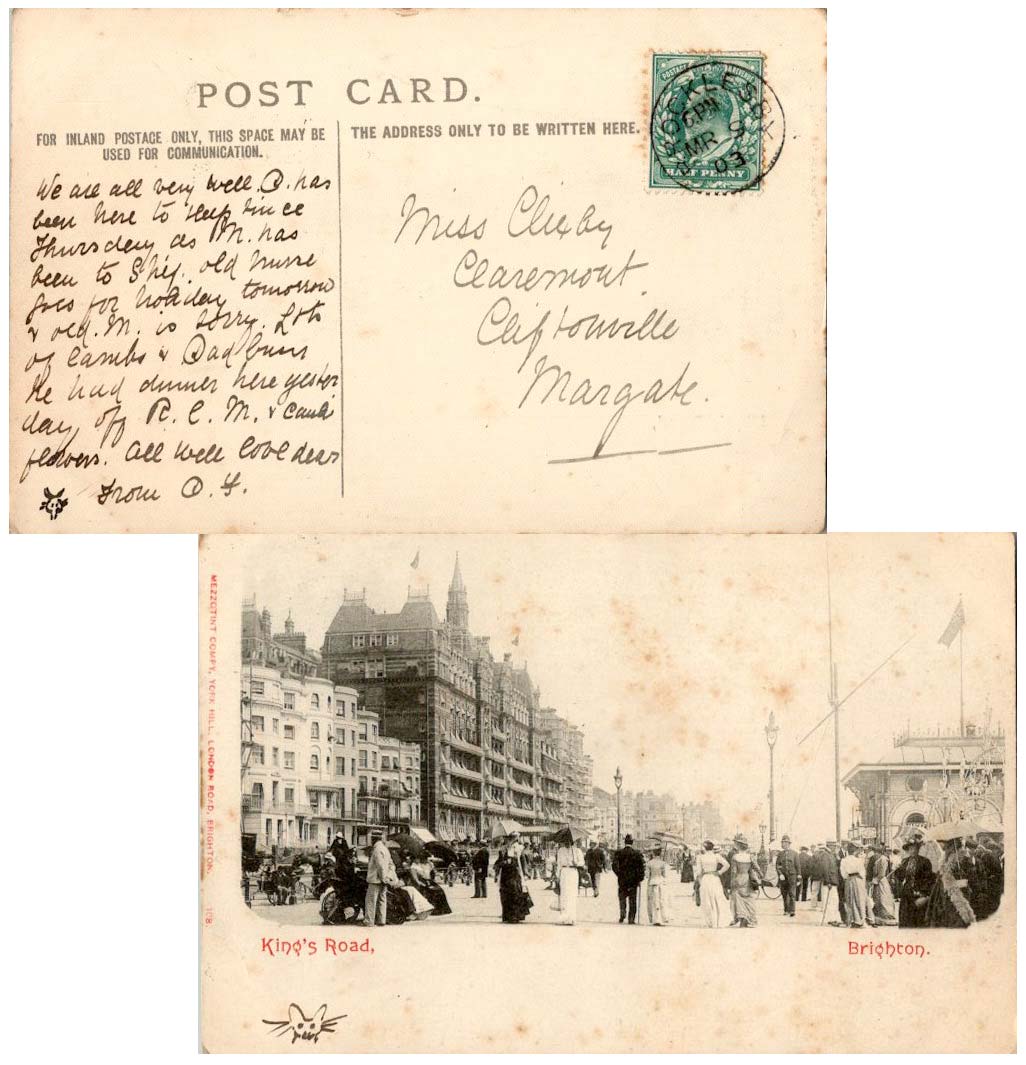 POST CARD.
FOR INLAND POSTAGE ONLY, THIS SPACE MAY BE
USED FOR COMMUNICATION.
THE ADDRESS ONLY TO BE WRITTEN HERE.
We are all very well. D. has
been here to sleep since
Thursday as M. has
been to old nurse
goes for holiday tomorrow
& old. M. is sorry. Lots
of lambs &
He had dinner here yester
day off R. C. M. &
flowers. All well love dear
From
Miss Clixby
Claremont
Cliftonville
Margate.
HALF PENNY
BROCKLESBY
6 PM
MR 9
03
MEZZOTINT COMPY, YORK HILL, LONDON ROAD, BRIGHTON.
King's Road,
Brighton.